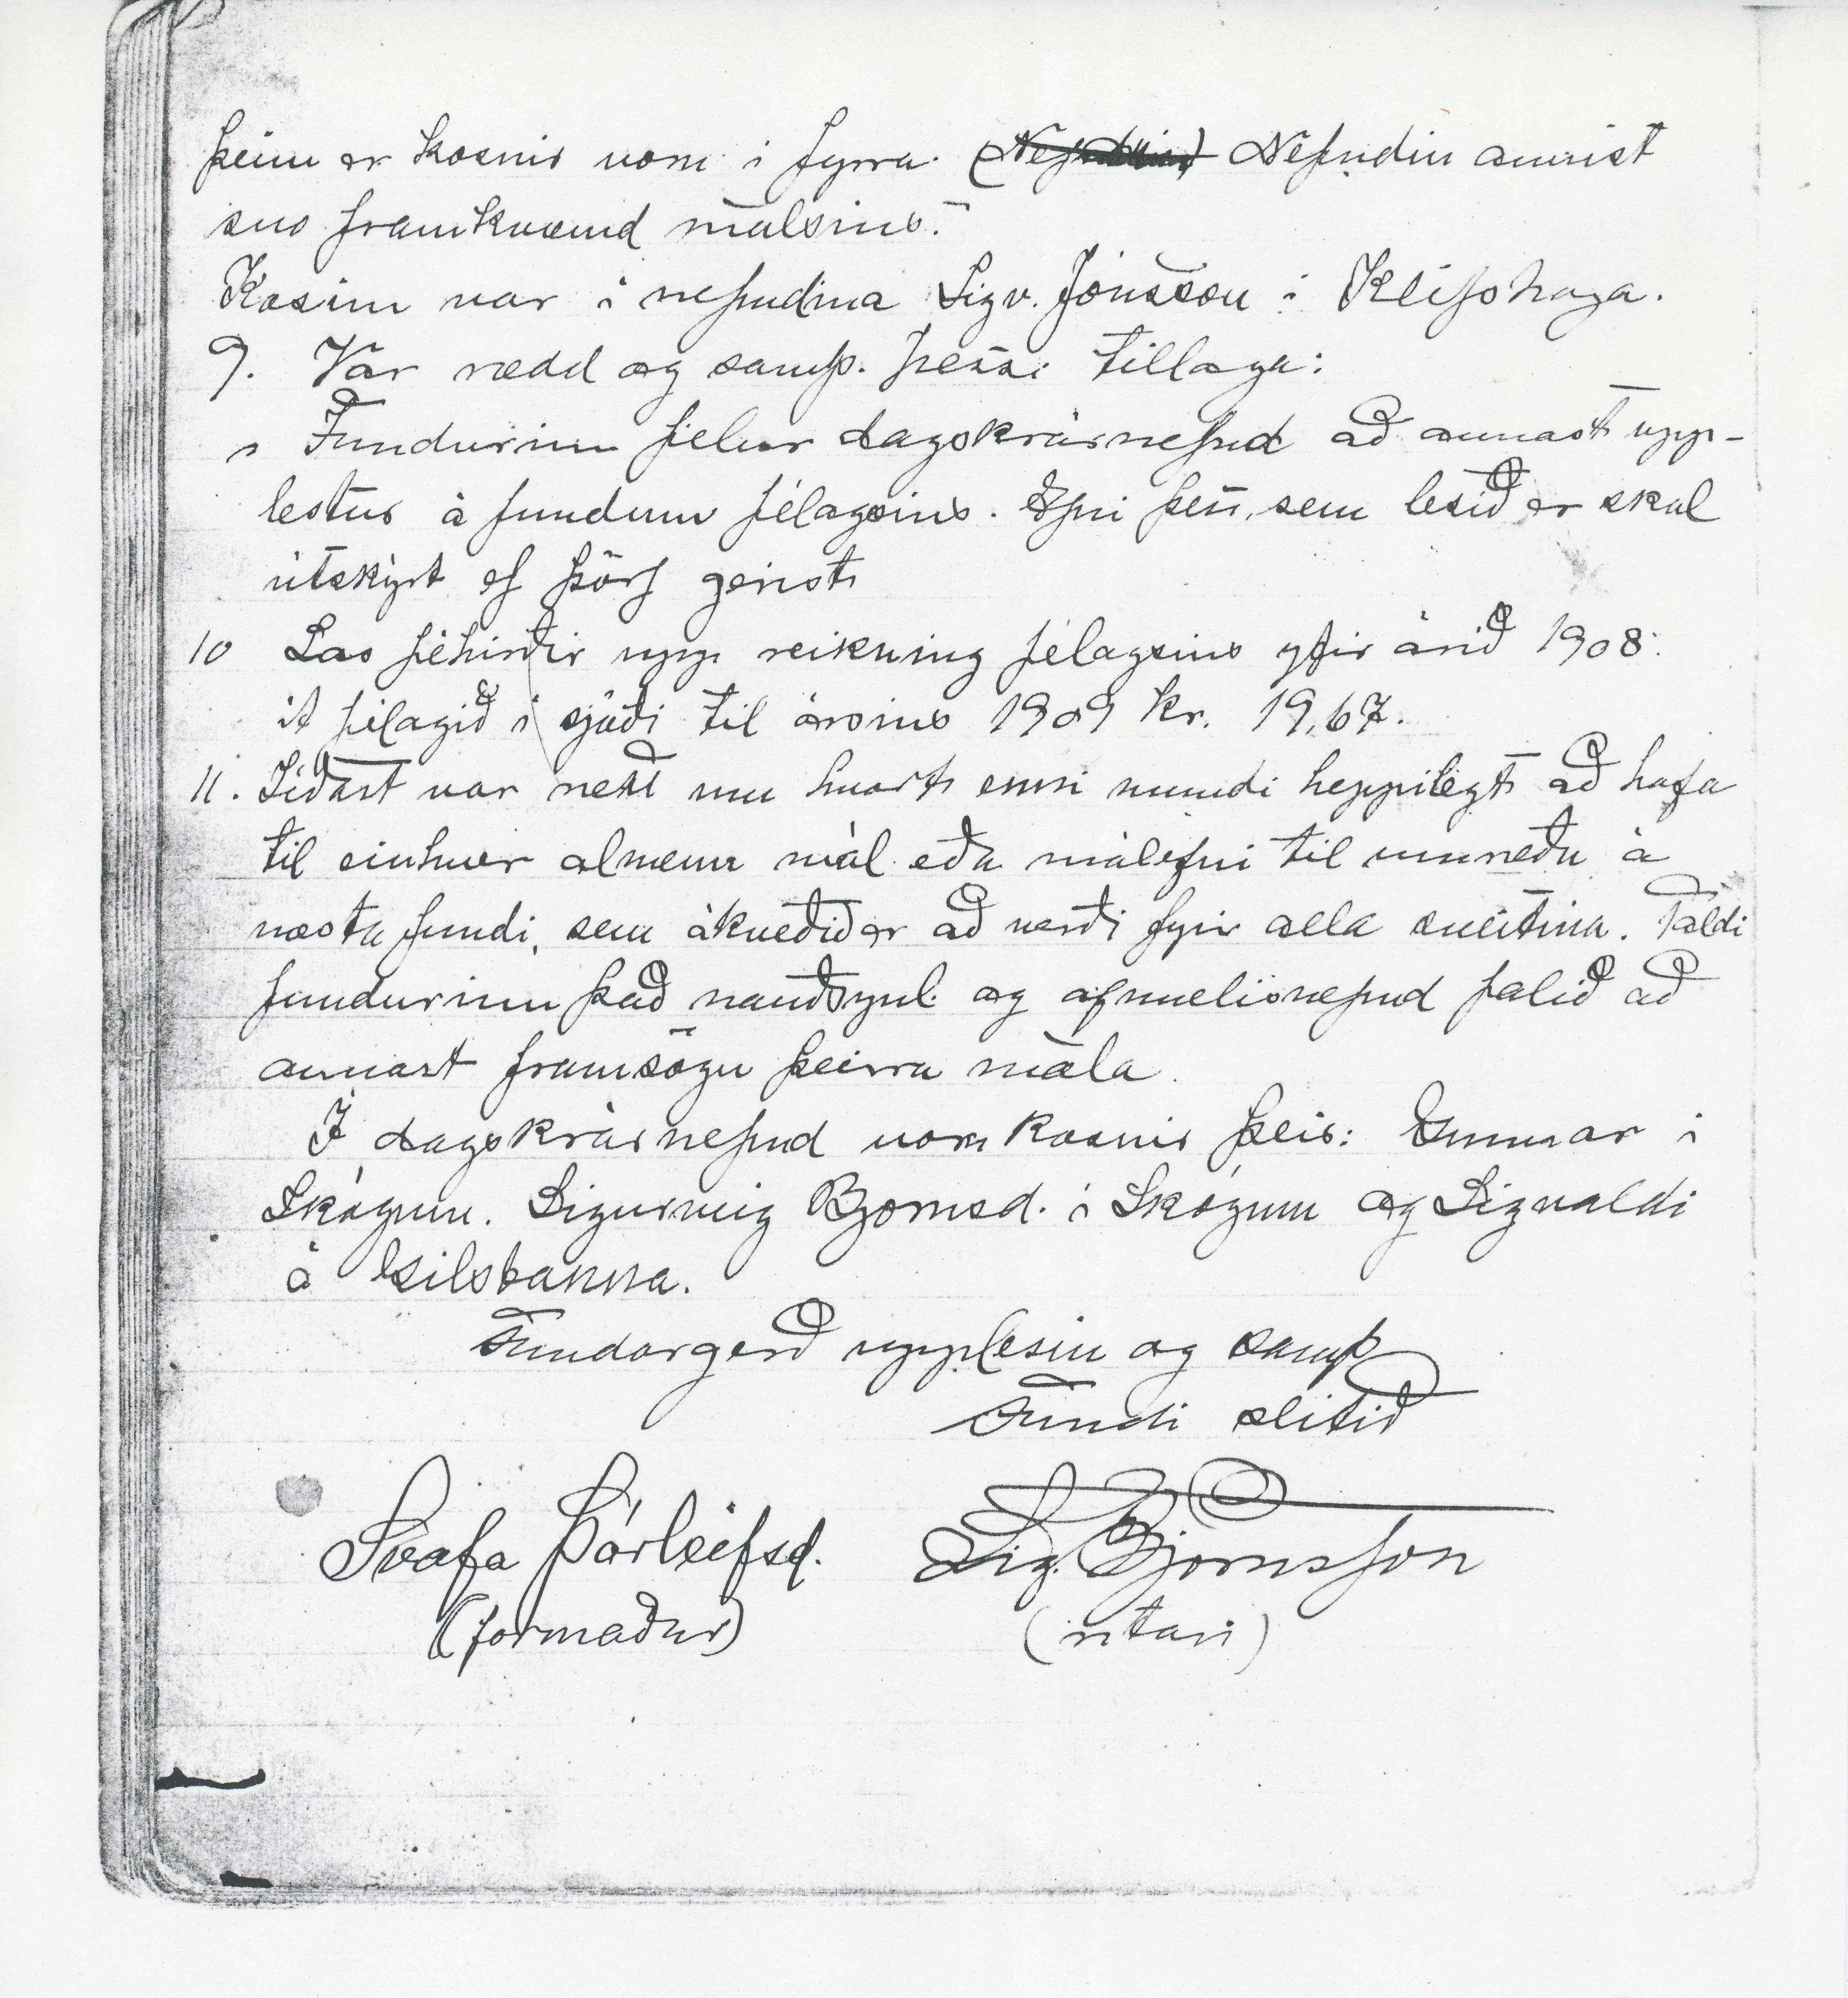 þeim er kosnir voru í fyrra. Nefndin annist
svo framkvæmd málsins."
Kosinn var í nefndina Sigv. Jónsson í Klifshaga.
9. Var rædd og samþ. þessi tillaga:
" Fundurinn felur dagskrárnefnd að annast upp-
lestur á fundum félagsins. Efni þess, sem lesið er skal
útskýrt ef þörf gerist
10 Las féhirðir upp reikning félagsins yfir árið 1908.
á félagið í sjóði til ársins 1909 kr. 19,67.
11. Síðast var rætt um hvort ekki mundi heppilegt að hafa
til einhver almenn mál eða málefni til umræðu á
næsta fundi, sem ákveðið er að verði fyrir alla sveitina. Taldi
fundurinn það nauðsynl. og afmælisnefnd falið að
annast framsögu þeirra mála.
Í dagskrárnefnd voru kosnir þeir: Gunnar í
Skógum. Sigurveig Björnsd. í Skógum og Sigvaldi
á Gilsbakka.
Fundargerð upplesin og samþ
Fundi slitið
Svafa Þórleifsd. Sig. Björnsson
(formaður) (ritari)